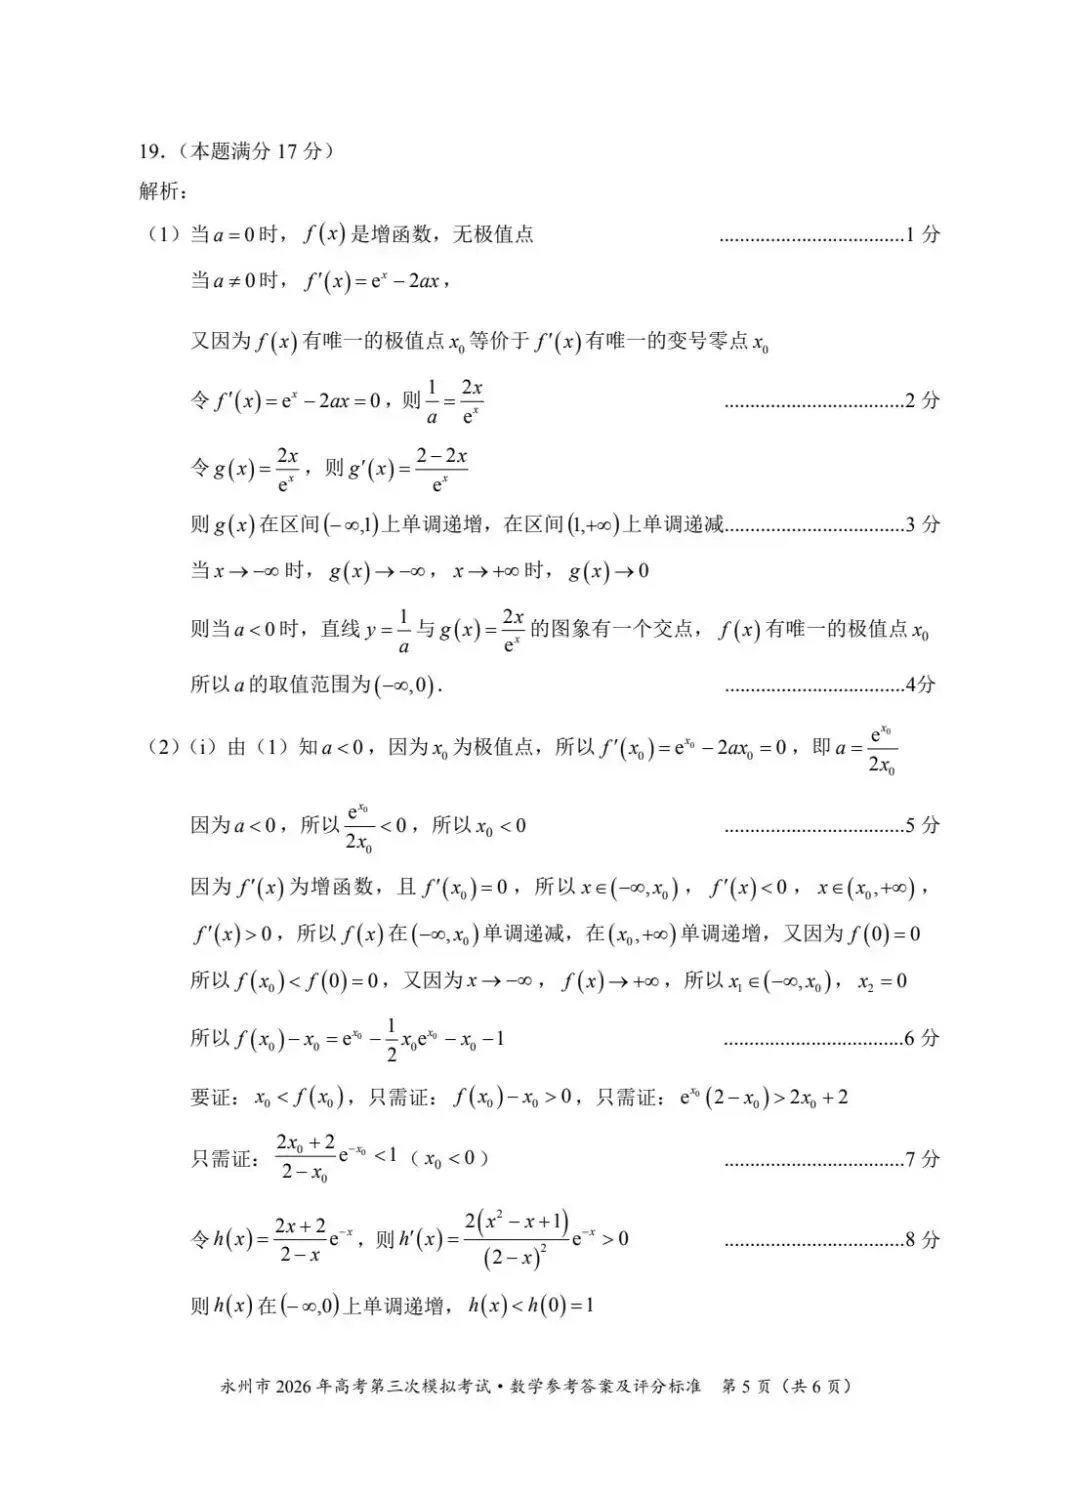 19.（本题满分 17 分）
解析：
（1）当 a = 0 时， f(x) 是增函数，无极值点 ....................................1 分
当 a ≠ 0 时， f′(x) = eˣ − 2ax ，
又因为 f(x) 有唯一的极值点 x₀ 等价于 f′(x) 有唯一的变号零点 x₀
令 f′(x) = eˣ − 2ax = 0 ，则 1/a = 2x/eˣ ....................................2 分
令 g(x) = 2x/eˣ ，则 g′(x) = (2 − 2x)/eˣ
则 g(x) 在区间 (−∞,1) 上单调递增，在区间 (1,+∞) 上单调递减....................................3 分
当 x → −∞ 时， g(x) → −∞ ， x → +∞ 时， g(x) → 0
则当 a < 0 时，直线 y = 1/a 与 g(x) = 2x/eˣ 的图象有一个交点， f(x) 有唯一的极值点 x₀
所以 a 的取值范围为 (−∞,0) . ....................................4分
（2）（i）由（1）知 a < 0 ，因为 x₀ 为极值点，所以 f′(x₀) = e^(x₀) − 2ax₀ = 0 ，即 a = e^(x₀)/(2x₀)
因为 a < 0 ，所以 e^(x₀)/(2x₀) < 0 ，所以 x₀ < 0 ....................................5 分
因为 f′(x) 为增函数，且 f′(x₀) = 0 ，所以 x ∈ (−∞, x₀) ， f′(x) < 0 ， x ∈ (x₀, +∞) ，
f′(x) > 0 ，所以 f(x) 在 (−∞, x₀) 单调递减，在 (x₀, +∞) 单调递增，又因为 f(0) = 0
所以 f(x₀) < f(0) = 0 ，又因为 x → −∞ ， f(x) → +∞ ，所以 x₁ ∈ (−∞, x₀) ， x₂ = 0
所以 f(x₀) − x₀ = e^(x₀) − 1/2 x₀e^(x₀) − x₀ − 1 ....................................6 分
要证： x₀ < f(x₀) ，只需证： f(x₀) − x₀ > 0 ，只需证： e^(x₀)(2 − x₀) > 2x₀ + 2
只需证： (2x₀ + 2)/(2 − x₀) e^(−x₀) < 1 （ x₀ < 0 ） ....................................7 分
令 h(x) = (2x + 2)/(2 − x) e^(−x) ，则 h′(x) = 2(x² − x + 1)/(2 − x)² e^(−x) > 0 ....................................8 分
则 h(x) 在 (−∞,0) 上单调递增， h(x) < h(0) = 1
永州市 2026 年高考第三次模拟考试·数学参考答案及评分标准 第 5 页（共 6 页）